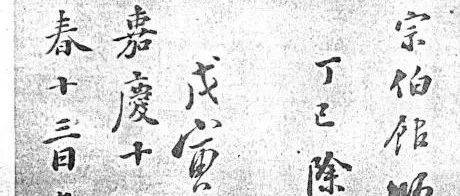 宗伯館
丁巳除
戊寅
嘉慶十
春十三日